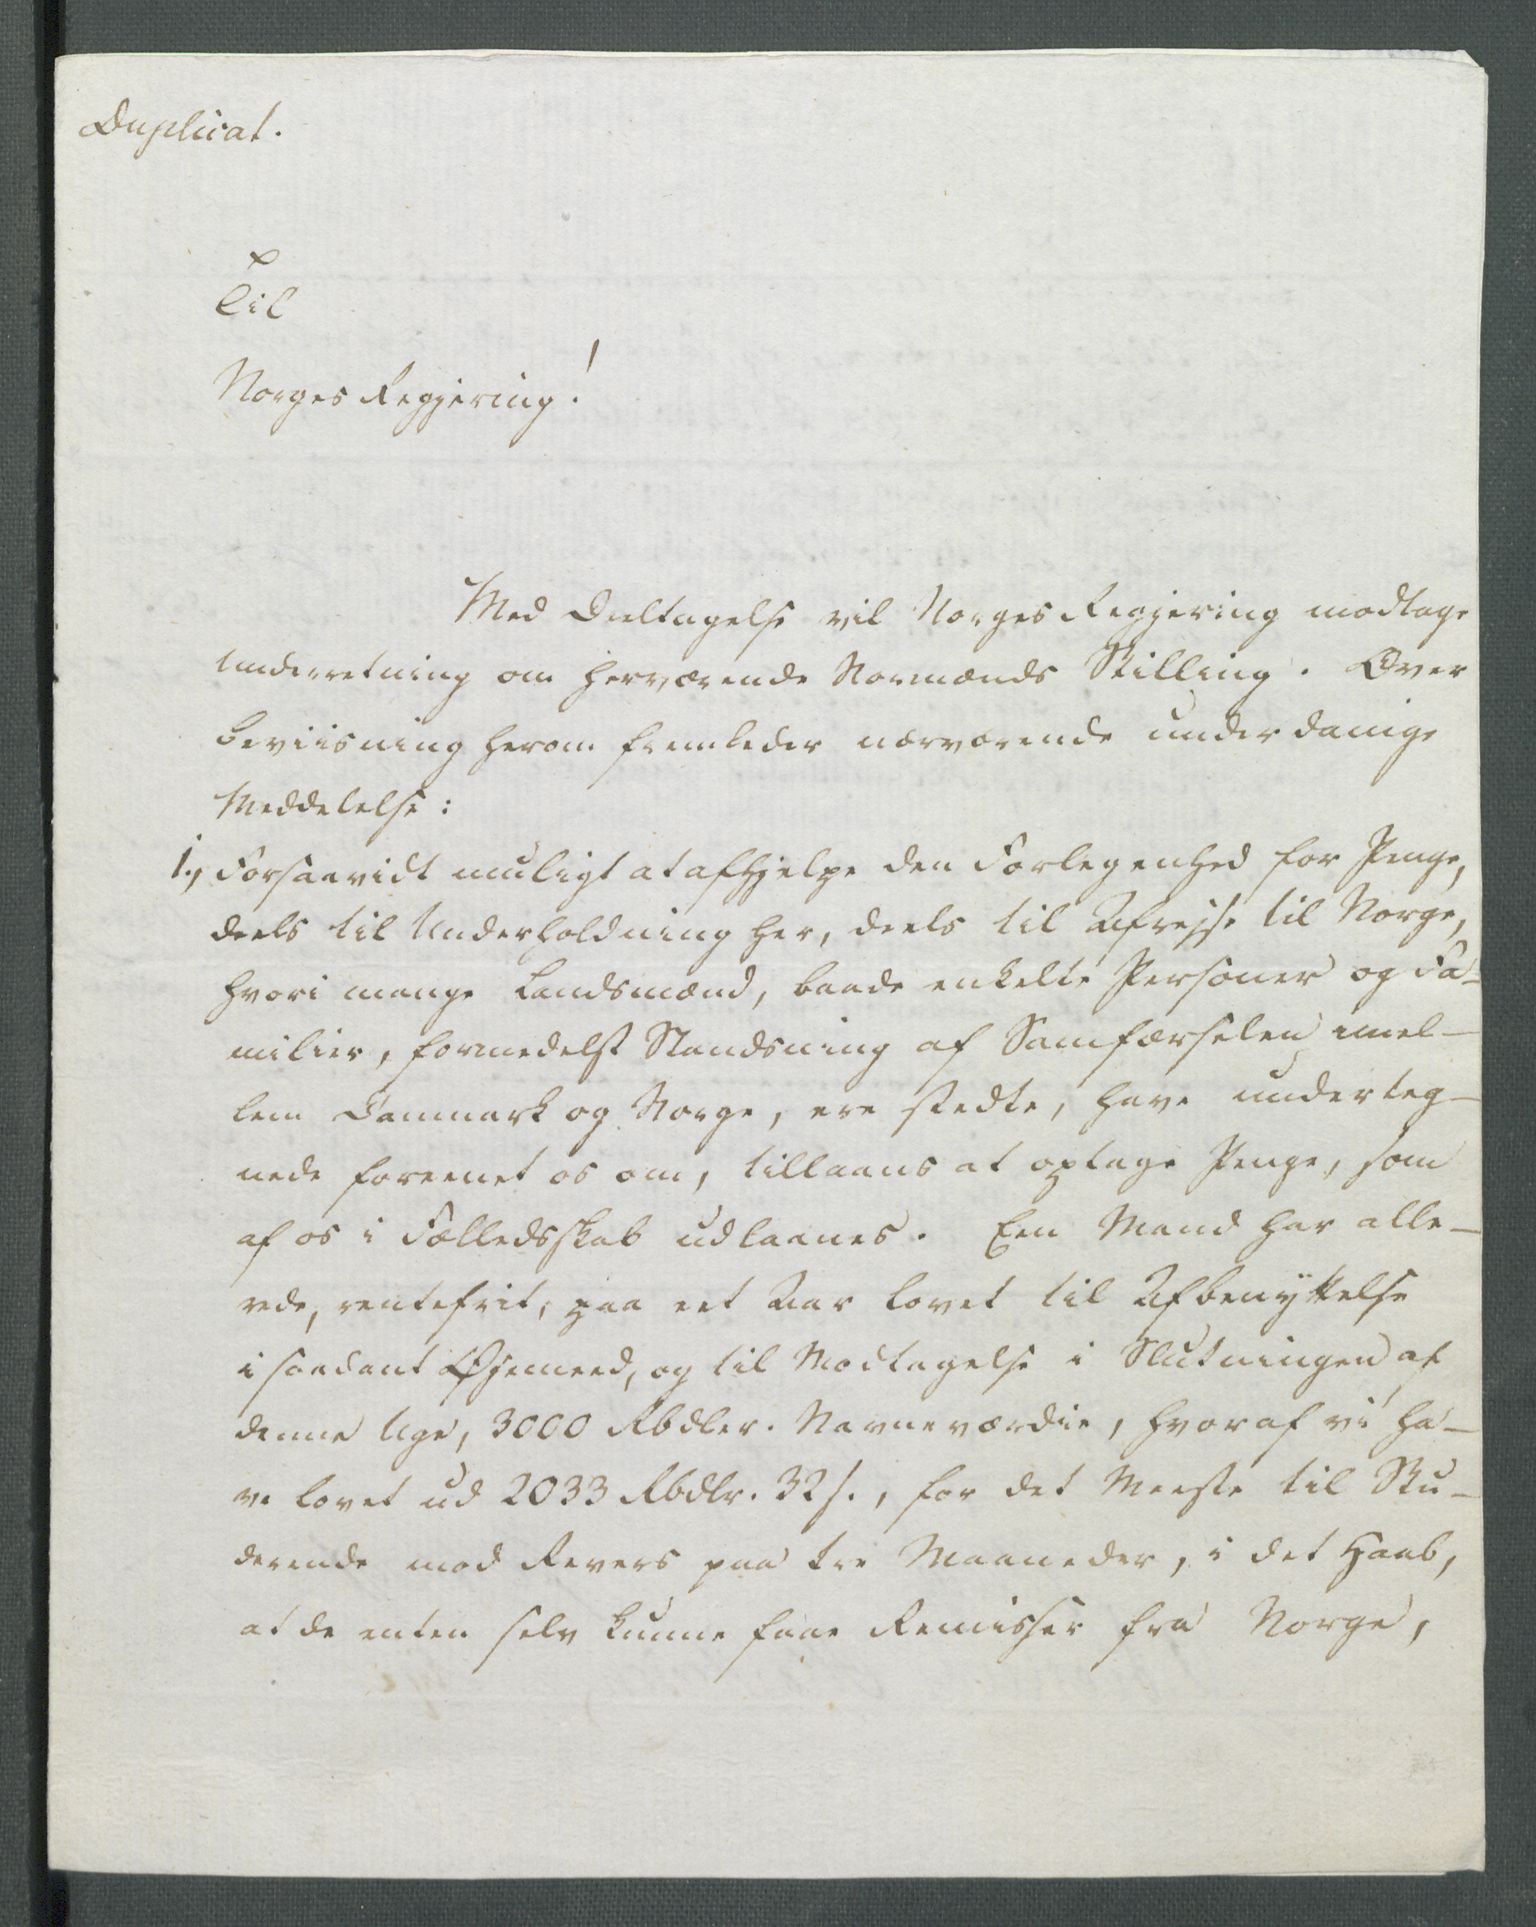 Duplicat.
Til
Norges Regjering!
Med Deeltagelse vil Norges Regjering modtage
Underretning om herværende Normænds Stilling. Over
beviisning herom fremleder nærværende underdanige
Meddelelse:
1., Forsaavidt muligt at afhjelpe den Forlegenhed for Penge,
deels til Underholdning her, deels til Afrejse til Norge,
hvori mange Landsmænd, baade enkelte Personer og Fa-
milier, formedelst Standsning af Samfærselen imel-
lem Danmark og Norge, ere stedte, have underteg-
nede foreenet os om, tillaans at optage Penge, som
af os i Fælledsskab udlaanes. Een Mand har alle-
rede, rentefrit, paa eet Aar lovet til Afbenyttelse
i saadant Øjemeed, og til Modtagelse i Slutningen af
denne Uge, 3000 Rbdler. Navneværdie, hvoraf vi ha-
ve lovet ud 2033 Rbdlr. 32 s., for det Meeste til Stu-
derende mod Revers paa tre Maaneder, i det Haab,
at de enten selv kunne faae Remisser fra Norge,